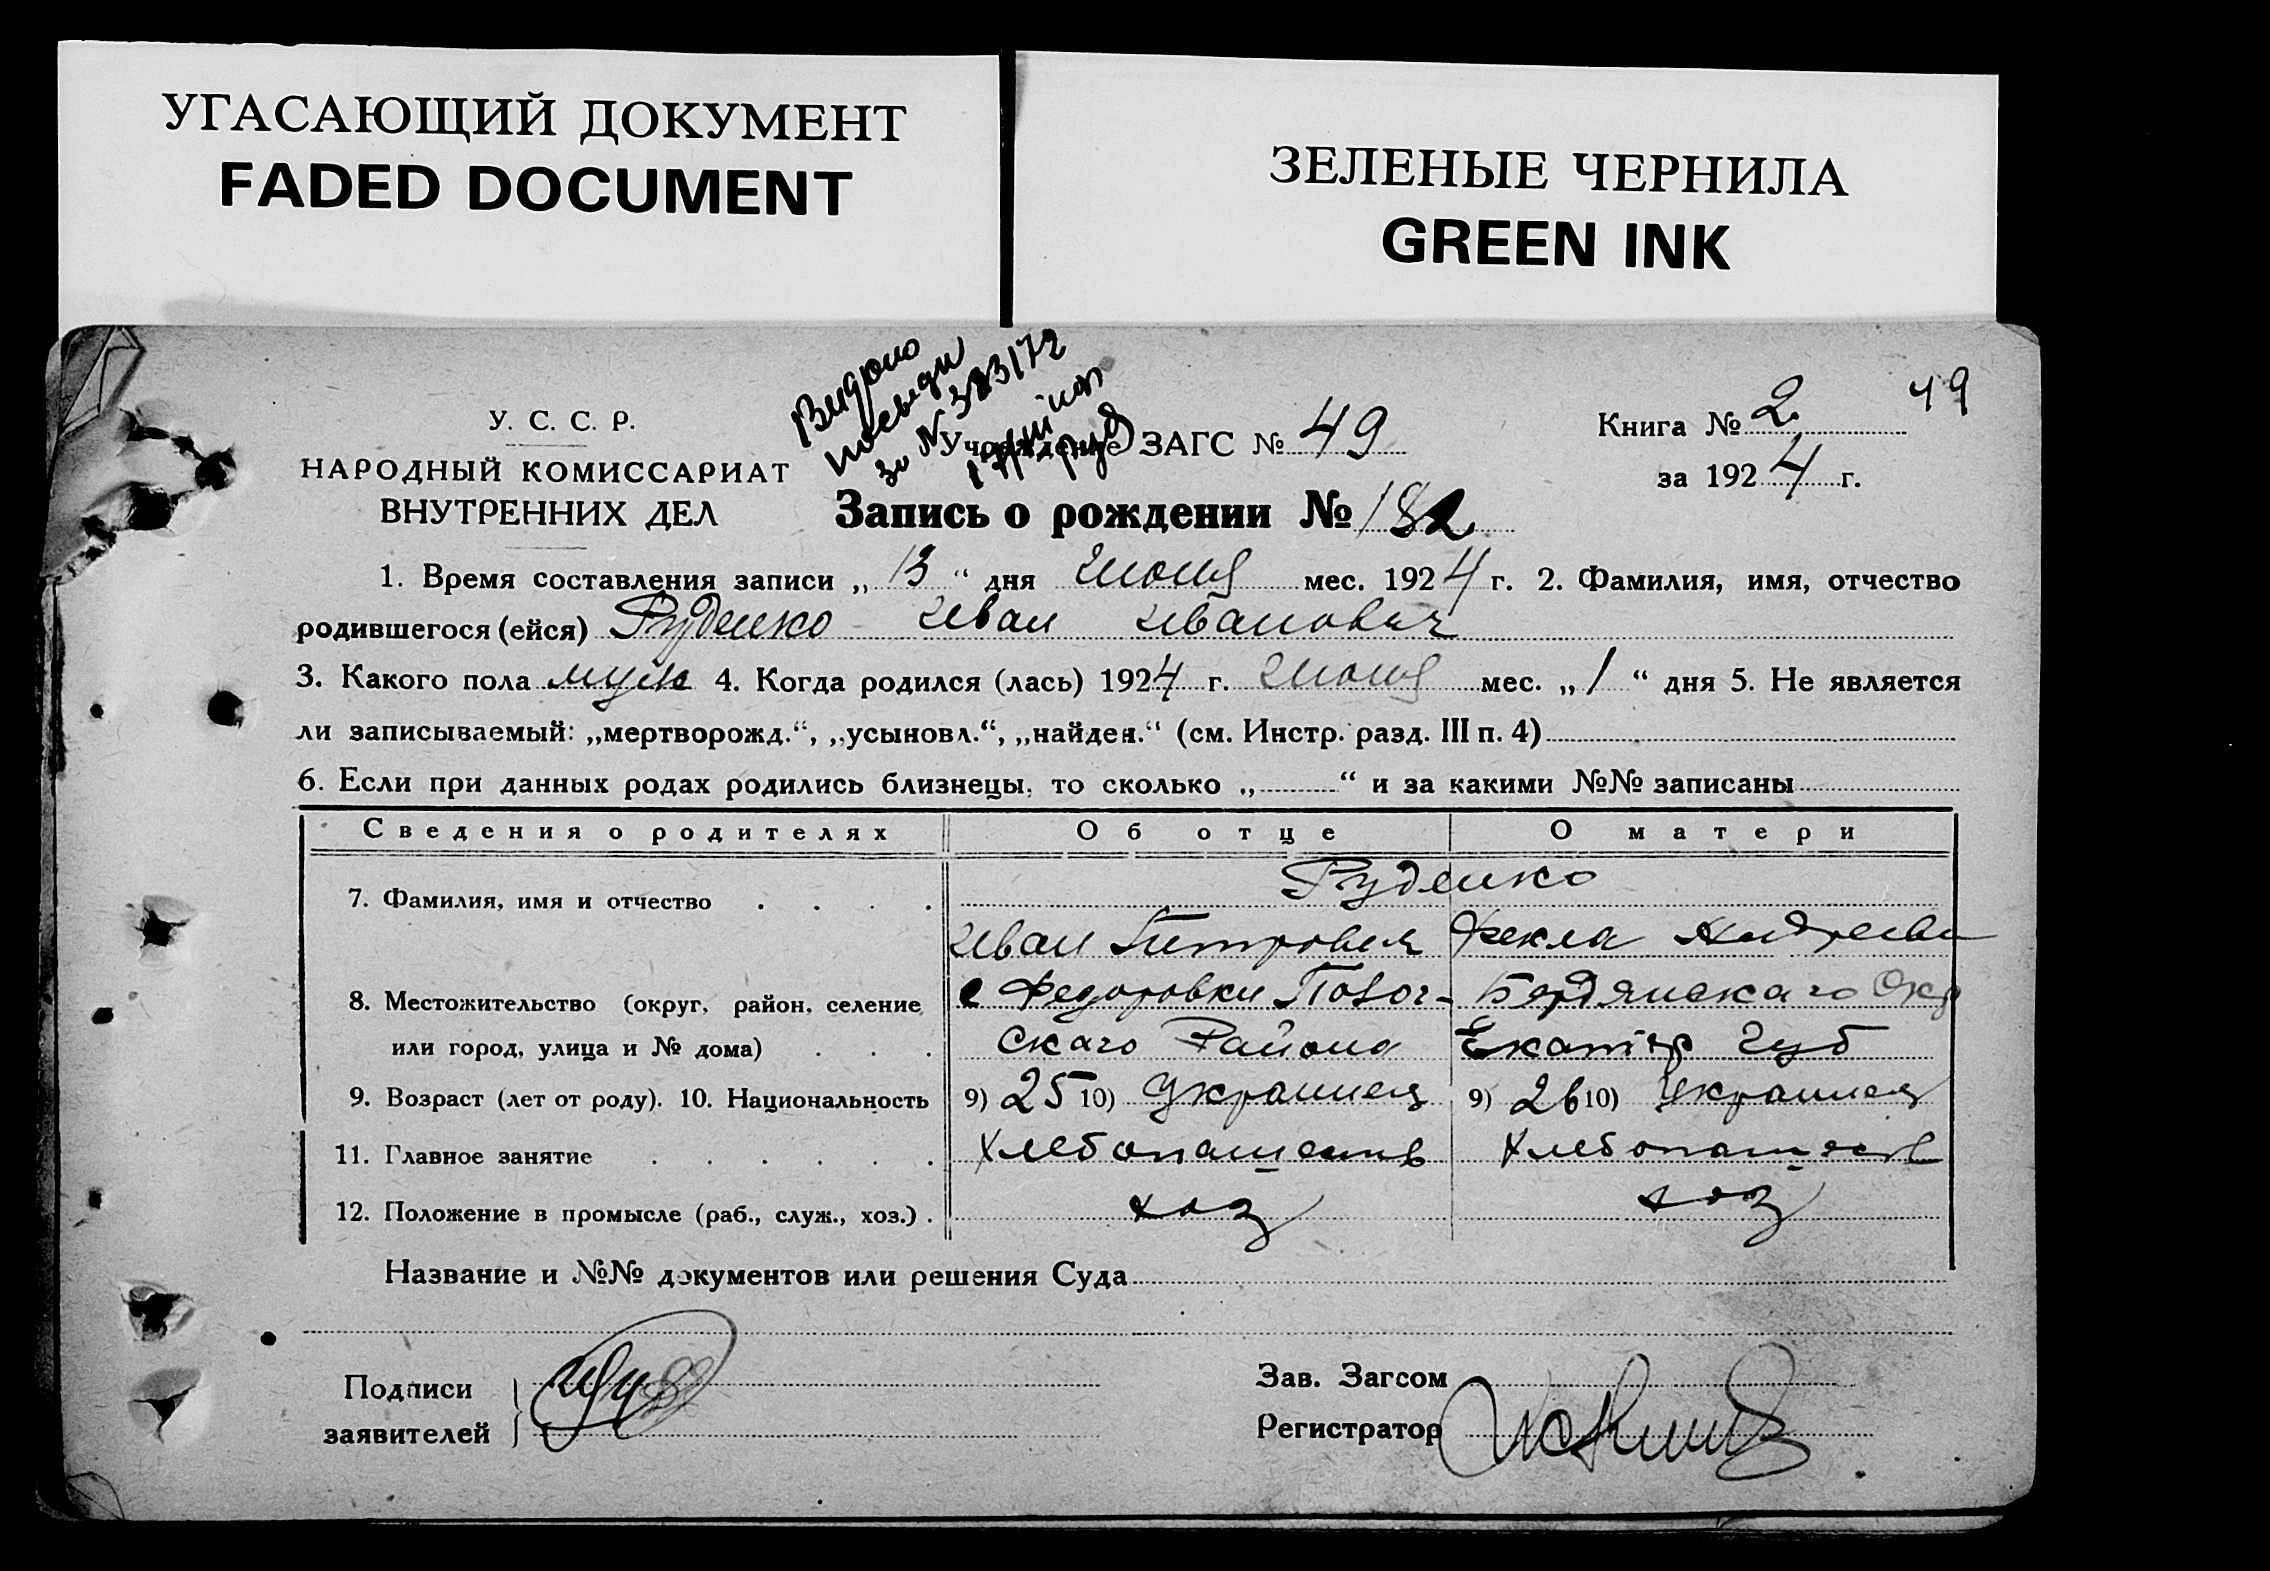 УГАСАЮЩИЙ ДОКУМЕНТ
FADED DOCUMENT
ЗЕЛЕНЫЕ ЧЕРНИЛА
GREEN INK
Видано
за № 383172
49
У. С. С. Р.
НАРОДНЫЙ КОМИССАРИАТ
ВНУТРЕННИХ ДЕЛ
Учреждение ЗАГС № 49
Книга № 2
за 1924 г.
Запись о рождении № 182
1. Время составления записи „ 13 “ дня Июня мес. 1924 г. 2. Фамилия, имя, отчество
родившегося (ейся) Руденко Иван Иванович
3. Какого пола муж 4. Когда родился (лась) 1924 г. Июня мес. „ 1 “ дня 5. Не является
ли записываемый: „мертворожд.“, „усыновл.“, „найден.“ (см. Инстр. разд. III п. 4)
6. Если при данных родах родились близнецы, то сколько „ “ и за какими №№ записаны
Сведения о родителях Об отце О матери
7. Фамилия, имя и отчество Руденко
Иван Петрович Фекла Андреевн
8. Местожительство (округ, район, селение с Федоровки Бердянскаго Окр
или город, улица и № дома) скаго Района Екатер Губ
9. Возраст (лет от роду). 10. Национальность 9) 25 10) Украинец 9) 26 10) Украинец
11. Главное занятие Хлебопашеств Хлебопашеств
12. Положение в промысле (раб., служ., хоз.) . хоз хоз
Название и №№ документов или решения Суда
Подписи
заявителей
Зав. Загсом
Регистратор